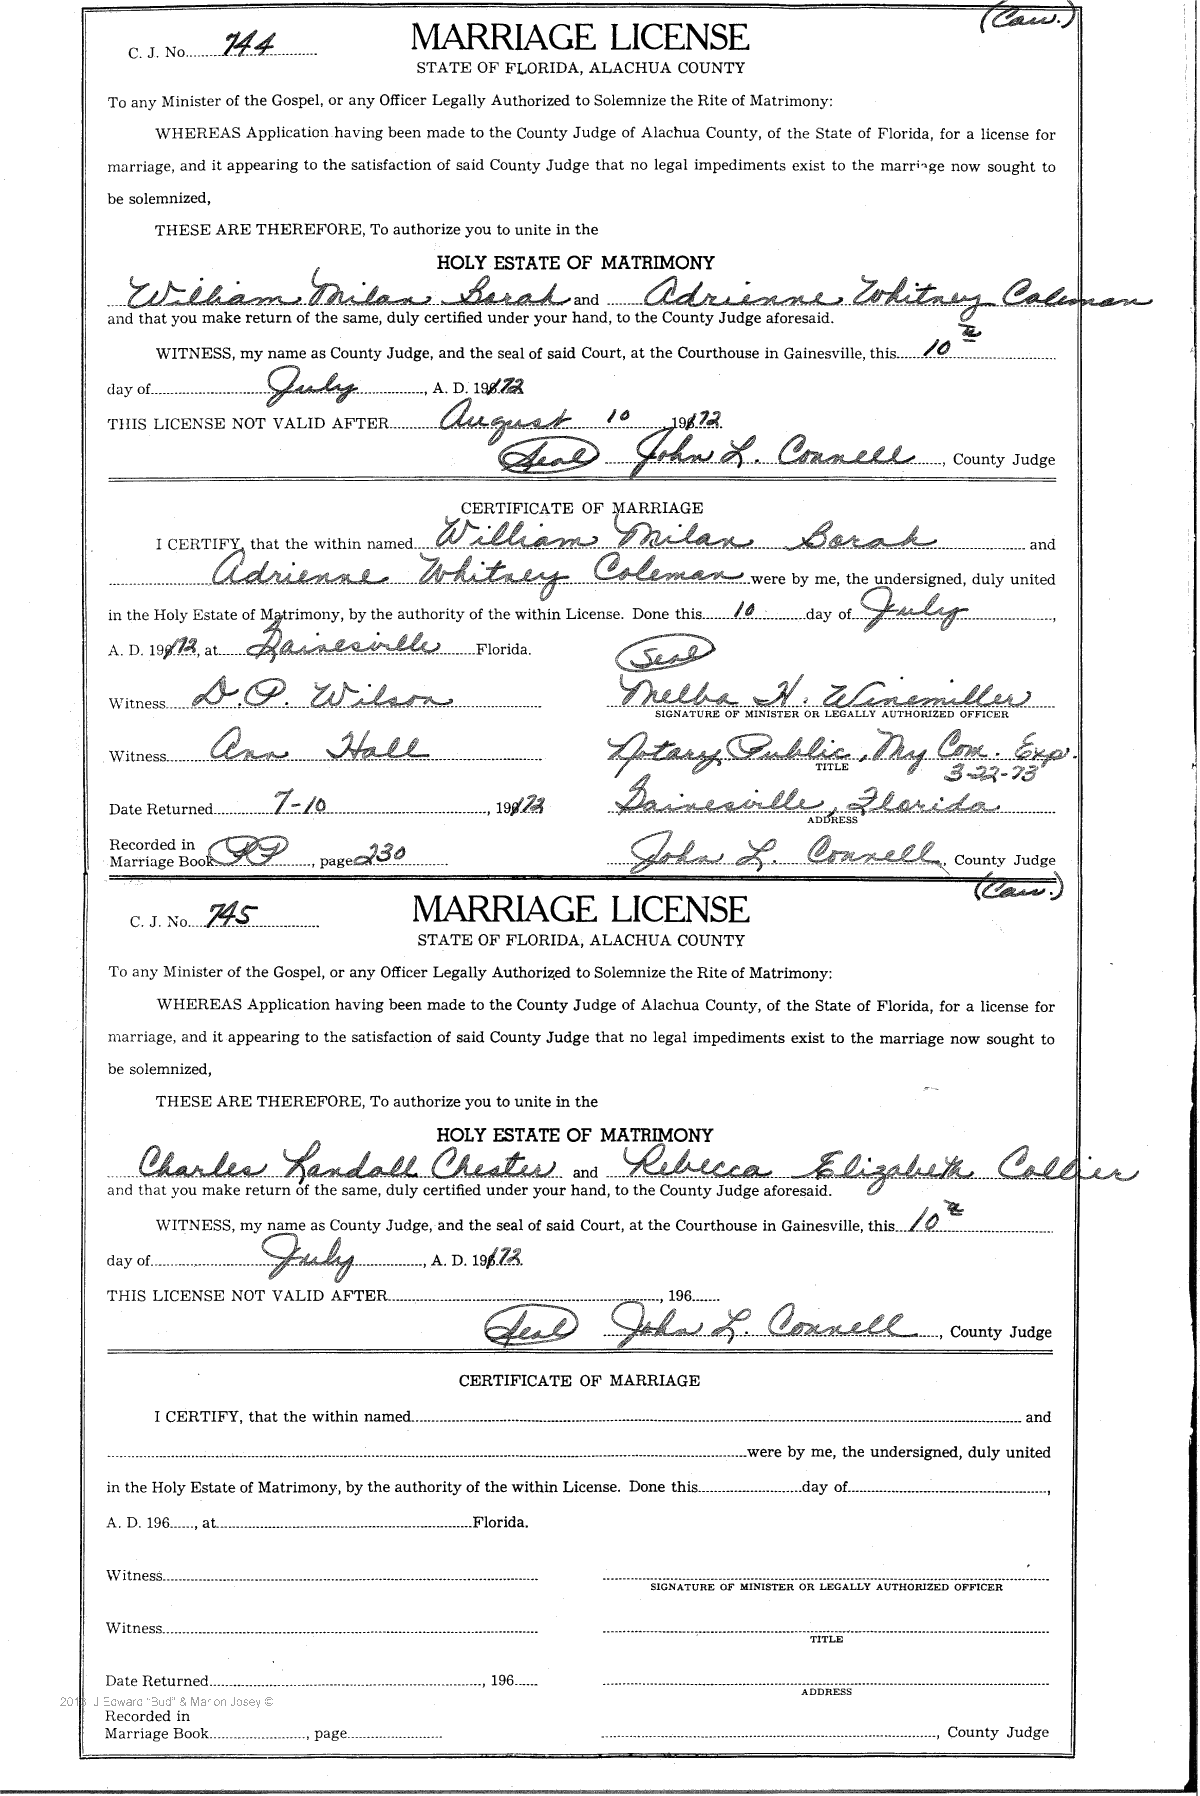 (Cau.)
C. J. No. 744
MARRIAGE LICENSE
STATE OF FLORIDA, ALACHUA COUNTY
To any Minister of the Gospel, or any Officer Legally Authorized to Solemnize the Rite of Matrimony:
WHEREAS Application having been made to the County Judge of Alachua County, of the State of Florida, for a license for
marriage, and it appearing to the satisfaction of said County Judge that no legal impediments exist to the marriage now sought to
be solemnized,
THESE ARE THEREFORE, To authorize you to unite in the
HOLY ESTATE OF MATRIMONY
William Milan Borak and Adrienne Whitney Coleman
and that you make return of the same, duly certified under your hand, to the County Judge aforesaid.
WITNESS, my name as County Judge, and the seal of said Court, at the Courthouse in Gainesville, this 10th
day of July, A. D. 1972
THIS LICENSE NOT VALID AFTER August 10 1972.
(Seal) John L. Connell, County Judge
CERTIFICATE OF MARRIAGE
I CERTIFY, that the within named William Milan Borak and
Adrienne Whitney Coleman were by me, the undersigned, duly united
in the Holy Estate of Matrimony, by the authority of the within License. Done this 10 day of July,
A. D. 1972, at Gainesville Florida.
(Seal)
Witness D. P. Wilson Melba H. Winemiller
SIGNATURE OF MINISTER OR LEGALLY AUTHORIZED OFFICER
Witness Ann Hall Notary Public, My Com. Exp.
TITLE 3-22-73
Date Returned 7-10, 1972 Gainesville, Florida
ADDRESS
Recorded in
Marriage Book PP, page 230 John L. Connell, County Judge
(Cau.)
C. J. No. 745
MARRIAGE LICENSE
STATE OF FLORIDA, ALACHUA COUNTY
To any Minister of the Gospel, or any Officer Legally Authorized to Solemnize the Rite of Matrimony:
WHEREAS Application having been made to the County Judge of Alachua County, of the State of Florida, for a license for
marriage, and it appearing to the satisfaction of said County Judge that no legal impediments exist to the marriage now sought to
be solemnized,
THESE ARE THEREFORE, To authorize you to unite in the
HOLY ESTATE OF MATRIMONY
Charles Randall Chester and Rebecca Elizabeth Collier
and that you make return of the same, duly certified under your hand, to the County Judge aforesaid.
WITNESS, my name as County Judge, and the seal of said Court, at the Courthouse in Gainesville, this 10th
day of July, A. D. 1972.
THIS LICENSE NOT VALID AFTER, 196
(Seal) John L. Connell, County Judge
CERTIFICATE OF MARRIAGE
I CERTIFY, that the within named and
were by me, the undersigned, duly united
in the Holy Estate of Matrimony, by the authority of the within License. Done this day of,
A. D. 196, at Florida.
Witness
SIGNATURE OF MINISTER OR LEGALLY AUTHORIZED OFFICER
Witness
TITLE
Date Returned, 196
ADDRESS
J Edward "Bud" & Marion Josey ©
Recorded in
Marriage Book, page, County Judge